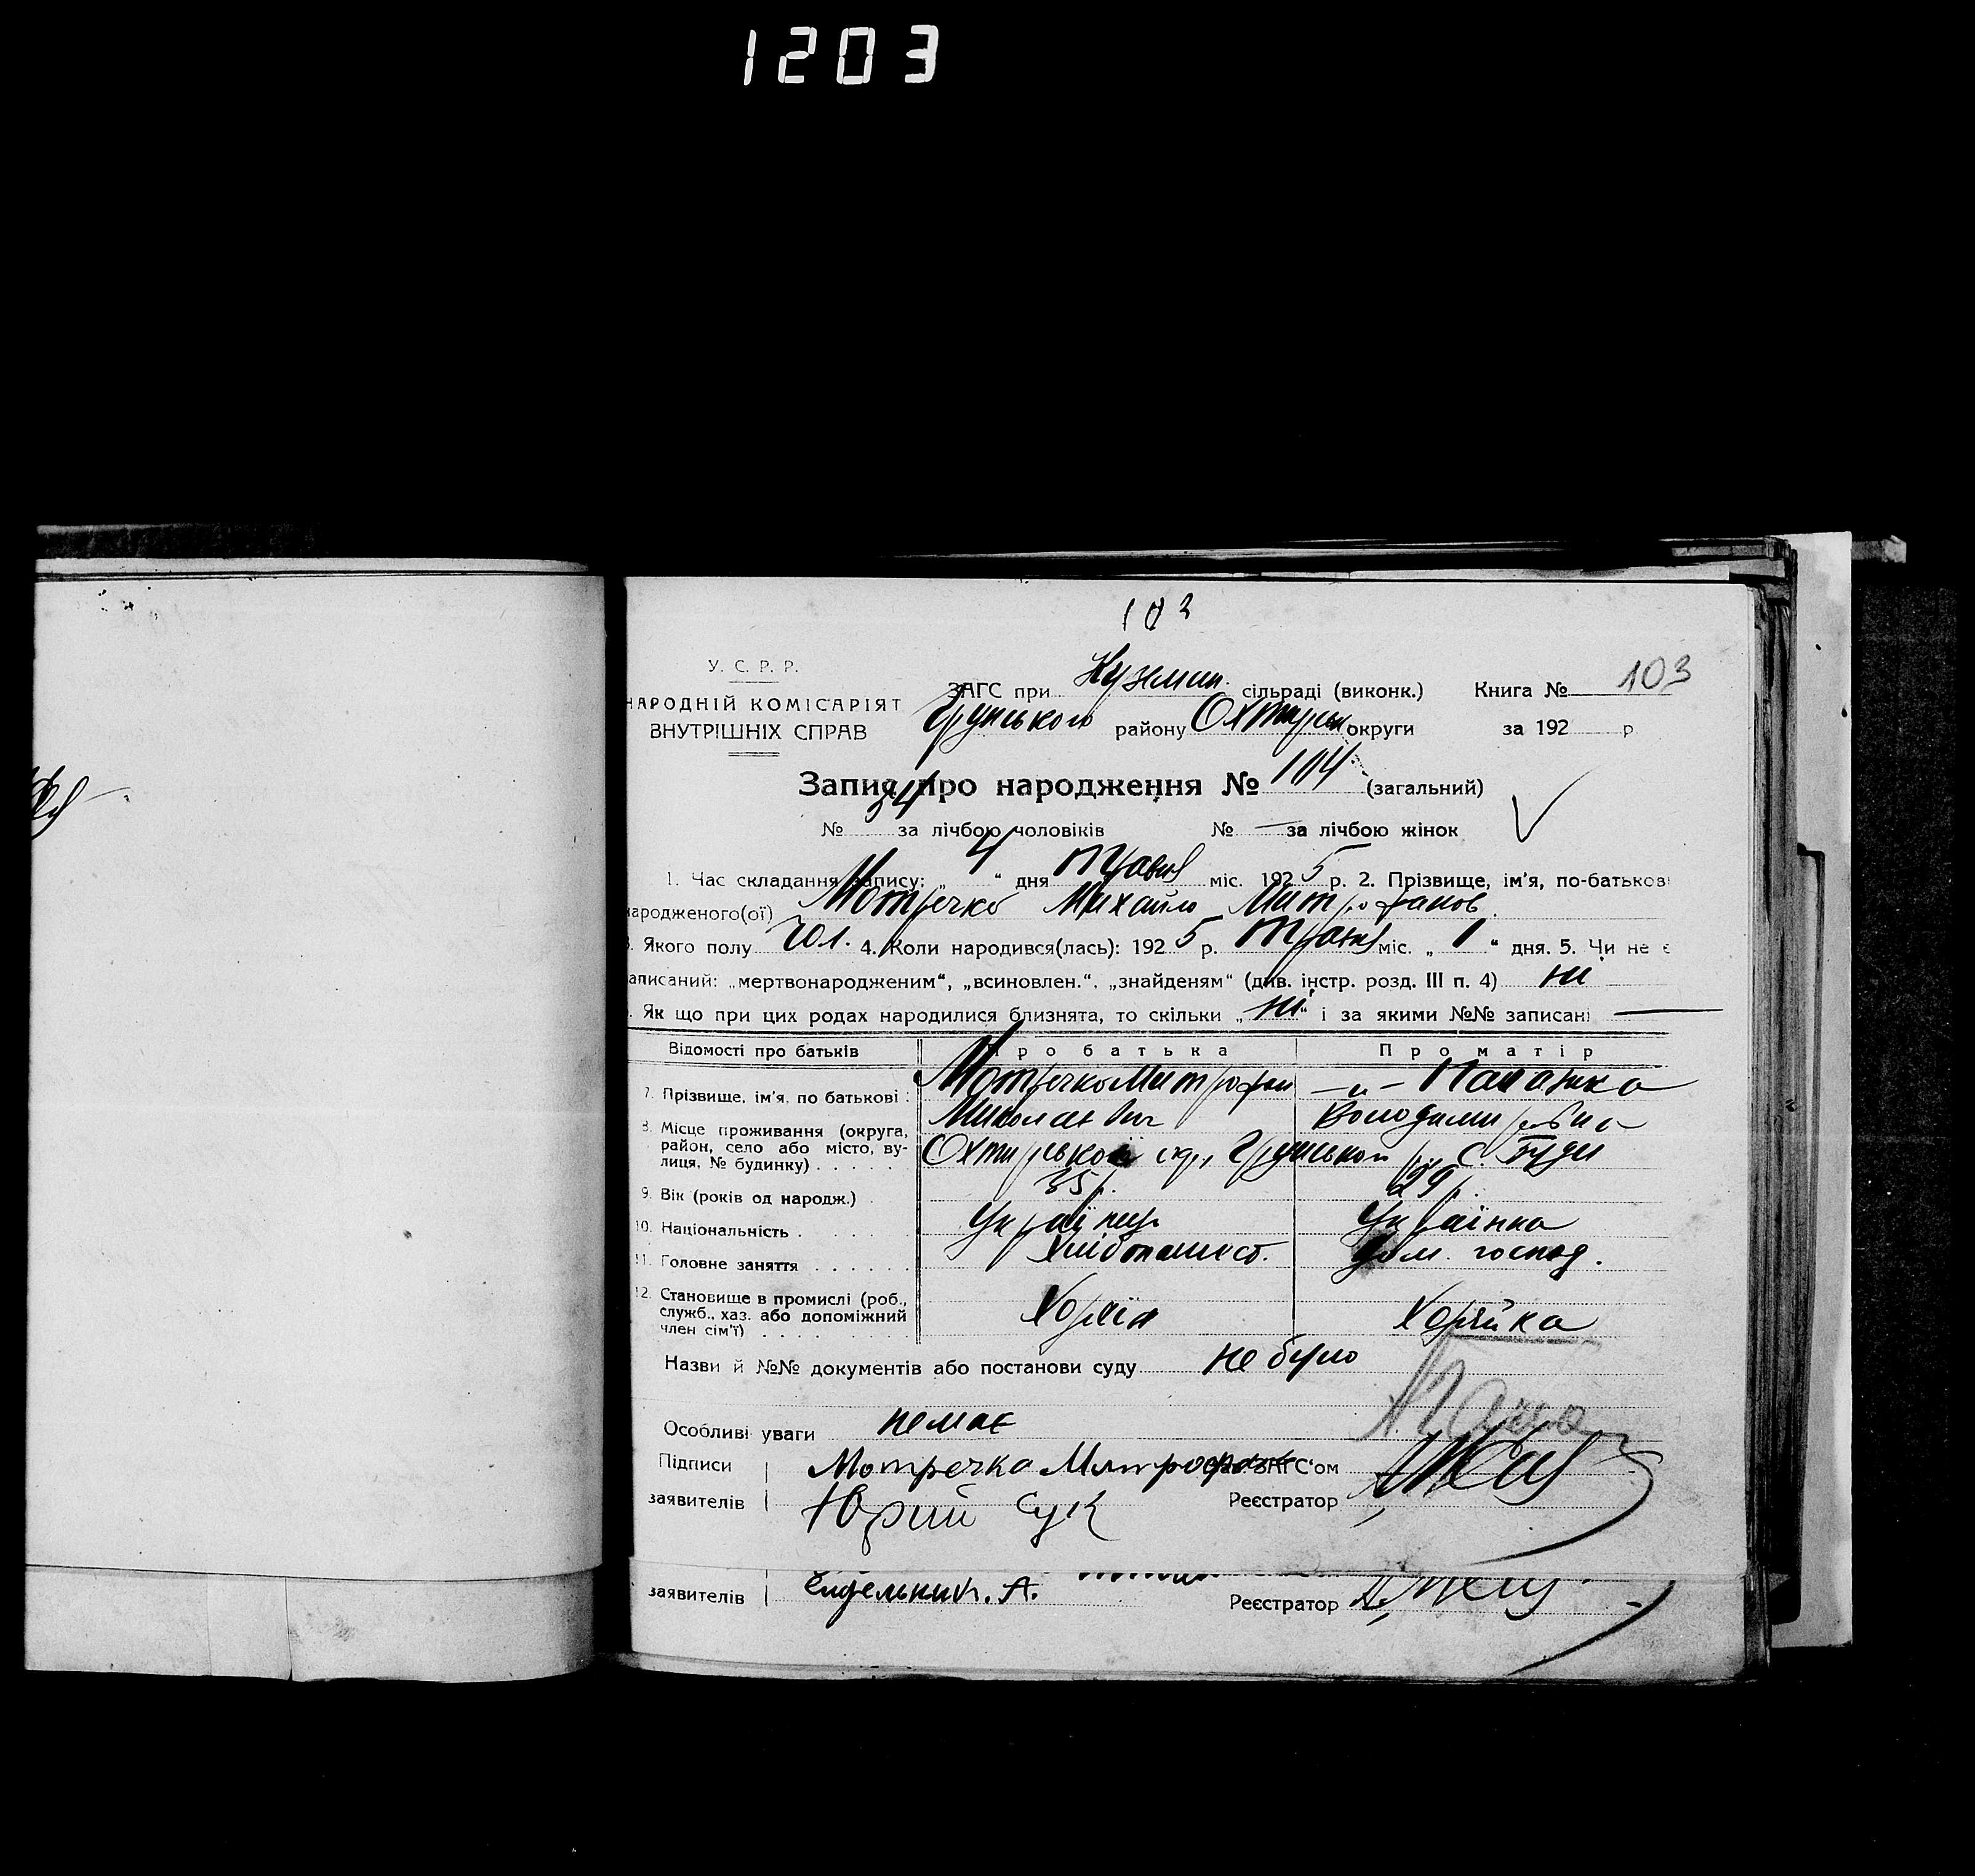 1203
103
У. С. Р. Р.
НАРОДНІЙ КОМІСАРІЯТ
ВНУТРІШНІХ СПРАВ
ЗАГС при Кузмин. сільраді (виконк.) Книга № 103
Грунського району Охтирськ округи за 192 р
Запис про народження № 104 (загальний)
№ 54 за лічбою чоловіків № — за лічбою жінок
1. Час складання запису: „ 4 “ дня травня міс. 1925 р. 2. Прізвище, ім'я, по-батькові
народженого(ої) Мотречко Михайло Митрофанов.
3. Якого полу чол. 4. Коли народився(лась): 1925 р. травня міс. „ 1 “ дня. 5. Чи не є
записаний: „мертвонародженим“, „всиновлен.“, „знайденям“ (див. інстр. розд. III п. 4) ні
. Як що при цих родах народилися близнята, то скільки „ ні “ і за якими №№ записані —
Відомості про батьків Про батька Про матір
7. Прізвище, ім'я, по батькові: Мотречко Митрофан — „ — Палажка
Миколаєвич Володимировна
8. Місце проживання (округа, район, село або місто, вулиця, № будинку) Охтирської окр., Грунської р. с. Буди
9. Вік (років од народж.) 35 р. 29 р.
10. Національність Українец Українка
11. Головне заняття Хліборобст. Дом. господ.
12. Становище в промислі (роб., служб., хаз. або допоміжний член сім'ї) Хозяїн Хозяйка
Назви й №№ документів або постанови суду не було
Особливі уваги немає
Підписи Мотречка Митрофан ЗАГС'ом
заявителів Юрий Сук Реєстратор
заявителів А. Реєстратор